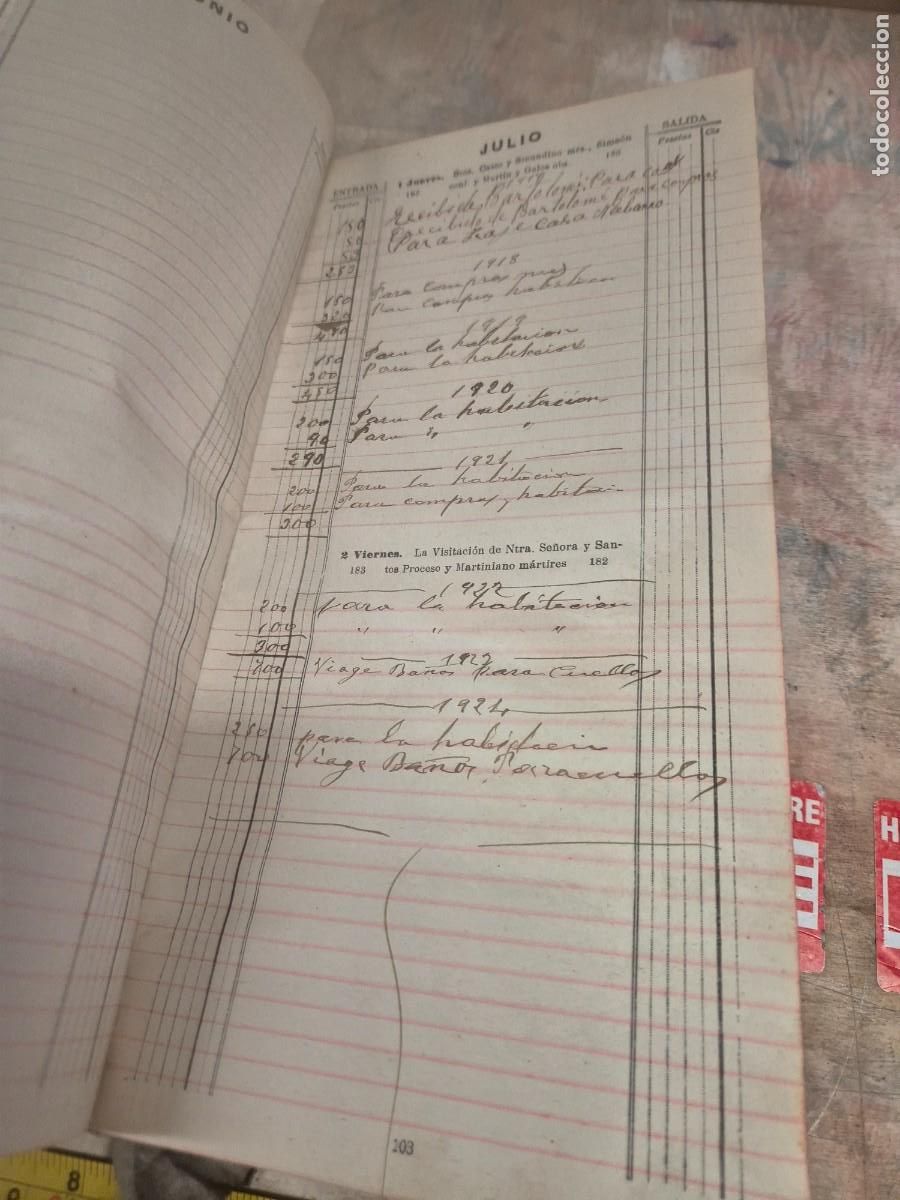 NIO
JULIO
ENTRADA
Pesetas Cts
1 Jueves. Stos. Casto y Secundino mrs., Simeón
182 conf. y Martín y Galo obs. 183
SALIDA
Pesetas Cts
150 Recibo de Bartolomé Para
50 Recibido de Bartolomé Para compras
50 Para casa
250
1918
150 Para compras
320 Para compras habitacion
470
1919
150 Para la habitacion
300 Para la habitacion
450
1920
200 Para la habitacion
90 Para " "
290
1921
200 Para la habitacion
100 Para compras y
300
2 Viernes. La Visitación de Ntra. Señora y San-
183 tos Proceso y Martiniano mártires 182
1922
200 para la habitacion
100 " " "
300
Viage Baños para Cuellos
1924
250 para la
700 Viage Baños Paracuellos
103
RE
E
H
8
9
todocoleccion